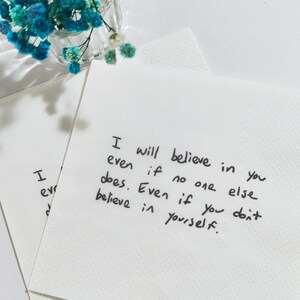 I will believe in you
even if no one else
does. Even if you don't
believe in yourself.
I